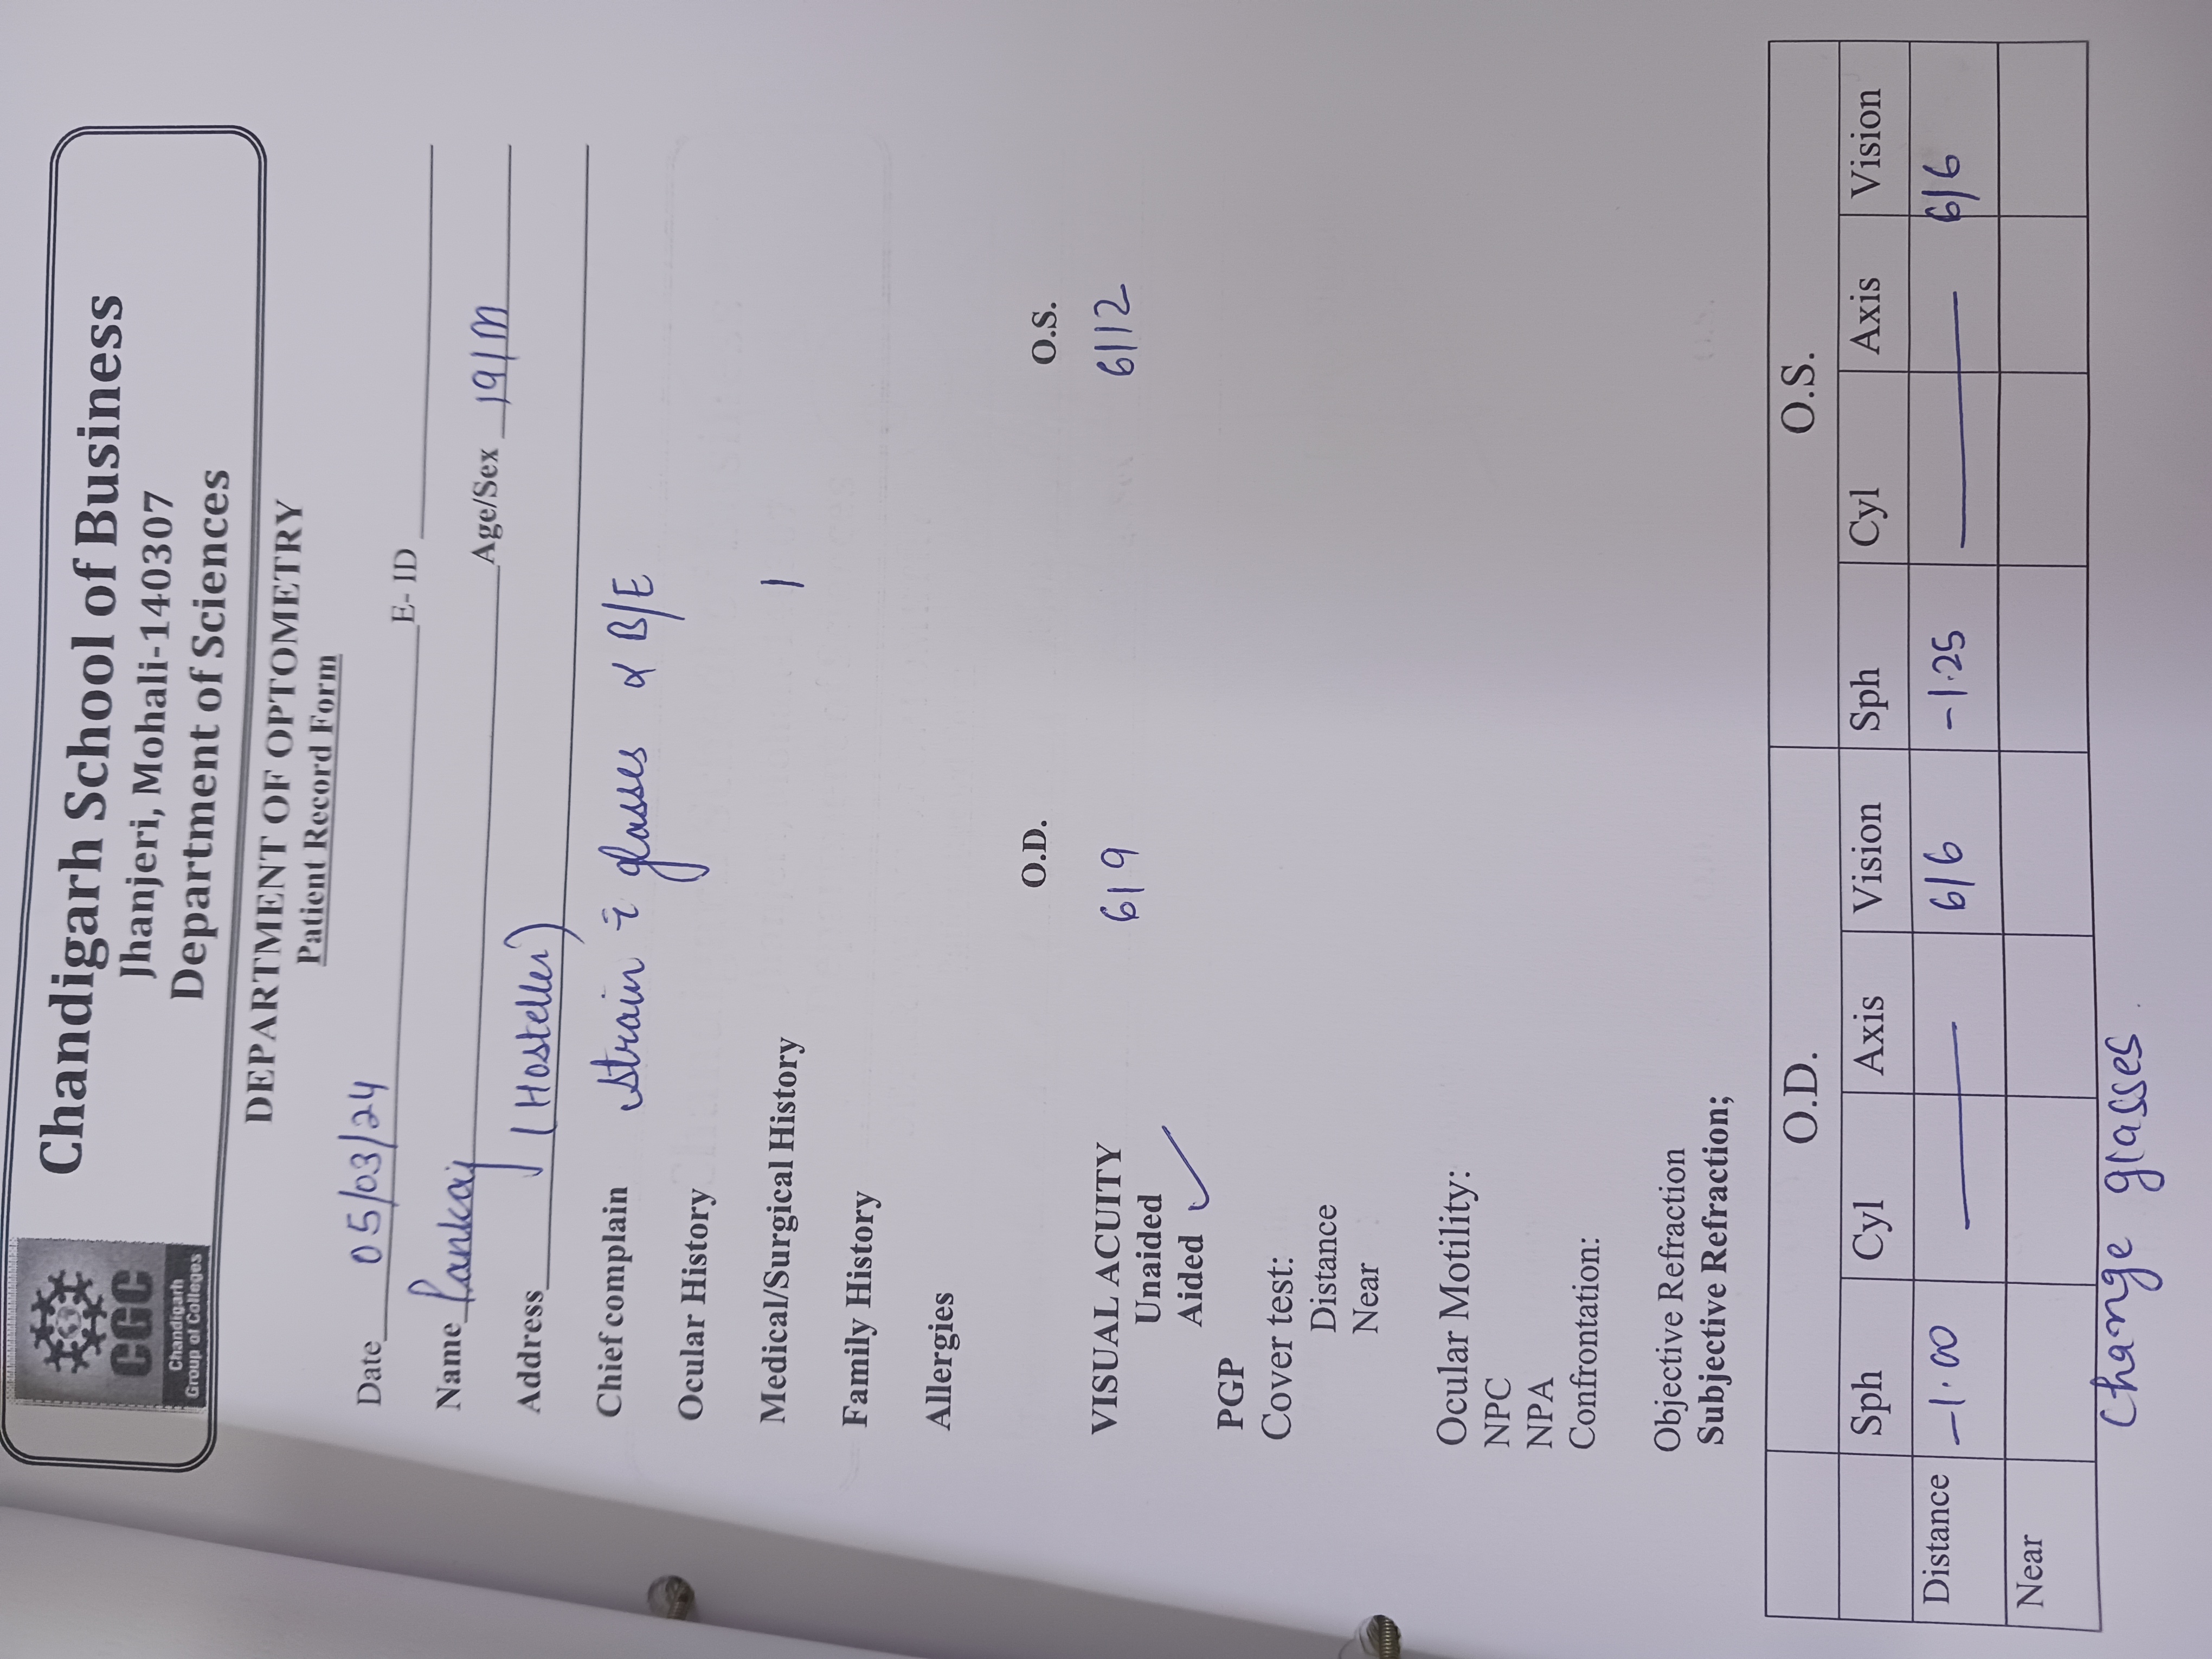 CGC
Chandigarh
Group of Colleges
Chandigarh School of Business
Jhanjeri, Mohali-140307
Department of Sciences
DEPARTMENT OF OPTOMETRY
Patient Record Form
Date 05/03/24 E- ID
Name Pankaj Age/Sex 19/M
Address (Hosteller)
Chief complain Strain c̄ glasses B/E
Ocular History
Medical/Surgical History
Family History
Allergies
O.D. O.S.
VISUAL ACUITY 6/9 6/12
Unaided
Aided ✓
PGP
Cover test:
Distance
Near
Ocular Motility:
NPC
NPA
Confrontation:
Objective Refraction
Subjective Refraction;
O.D. O.S.
Sph Cyl Axis Vision Sph Cyl Axis Vision
Distance -1.00 — 6/6 -1.25 — 6/6
Near
Change glasses.